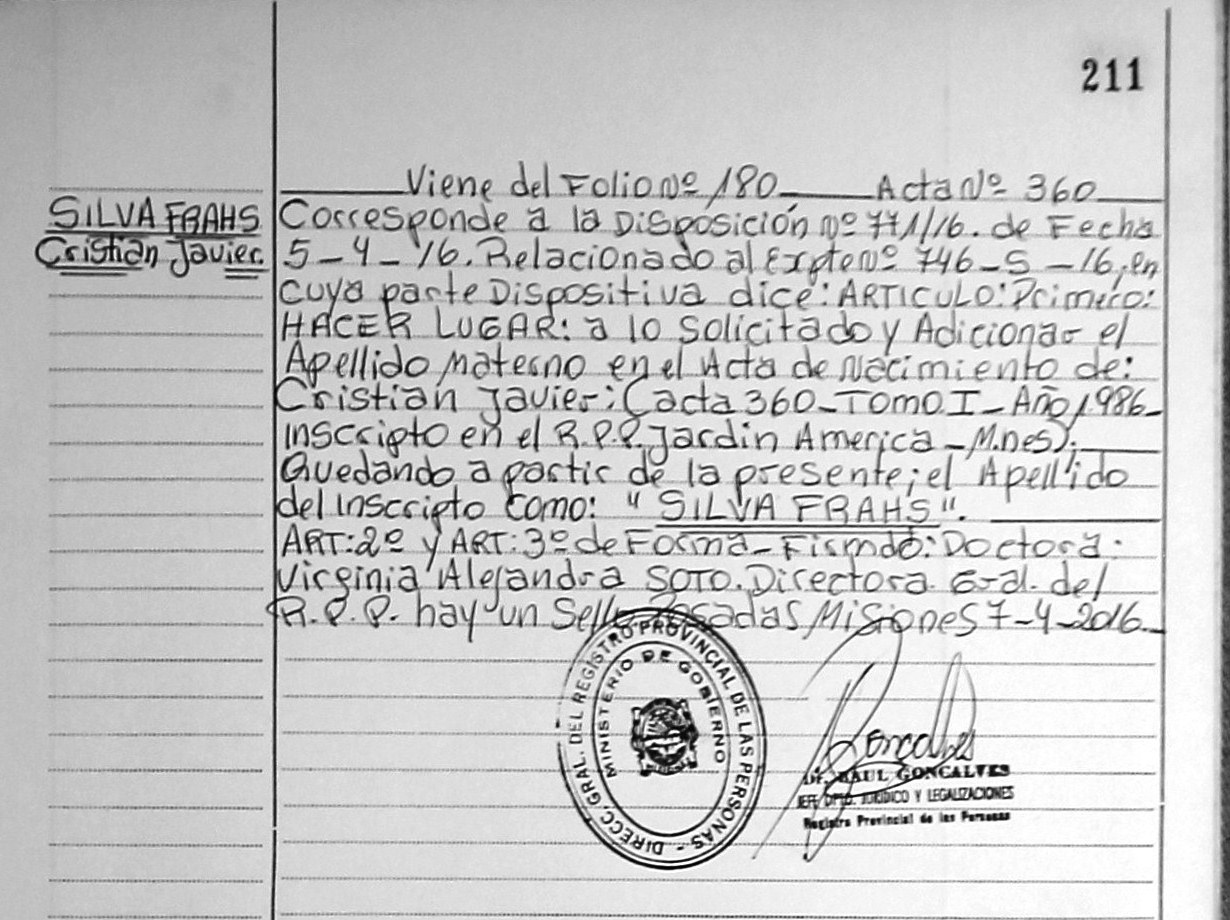 211
Viene del Folio Nº 180 Acta Nº 360
SILVA FRAHS
Cristian Javier
Corresponde a la Disposición Nº 771/16. de Fecha
5-4-16. Relacionado al Expte Nº 746-S-16, en
cuya parte Dispositiva dice: ARTICULO: Primero:
HACER LUGAR: a lo solicitado y Adicionar el
Apellido Materno en el Acta de Nacimiento de:
Cristian Javier; (acta 360-TOMO I-Año 1.986-
inscripto en el R.P.P. Jardin America-M.nes);
Quedando a partir de la presente; el Apellido
del inscripto como: "SILVA FRAHS".
ART: 2º y ART: 3º de Forma-Firmado: Doctora:
Virginia Alejandra SOTO. Directora Gral. del
R.P.P. hay un Sello Posadas Misiones 7-4-2016.
DIRECC. GRAL. DEL REGISTRO PROVINCIAL DE LAS PERSONAS -
MINISTERIO DE GOBIERNO
Goncalves
Dr. RAUL GONCALVES
JEFE DPTO. JURIDICO Y LEGALIZACIONES
Registro Provincial de las Personas